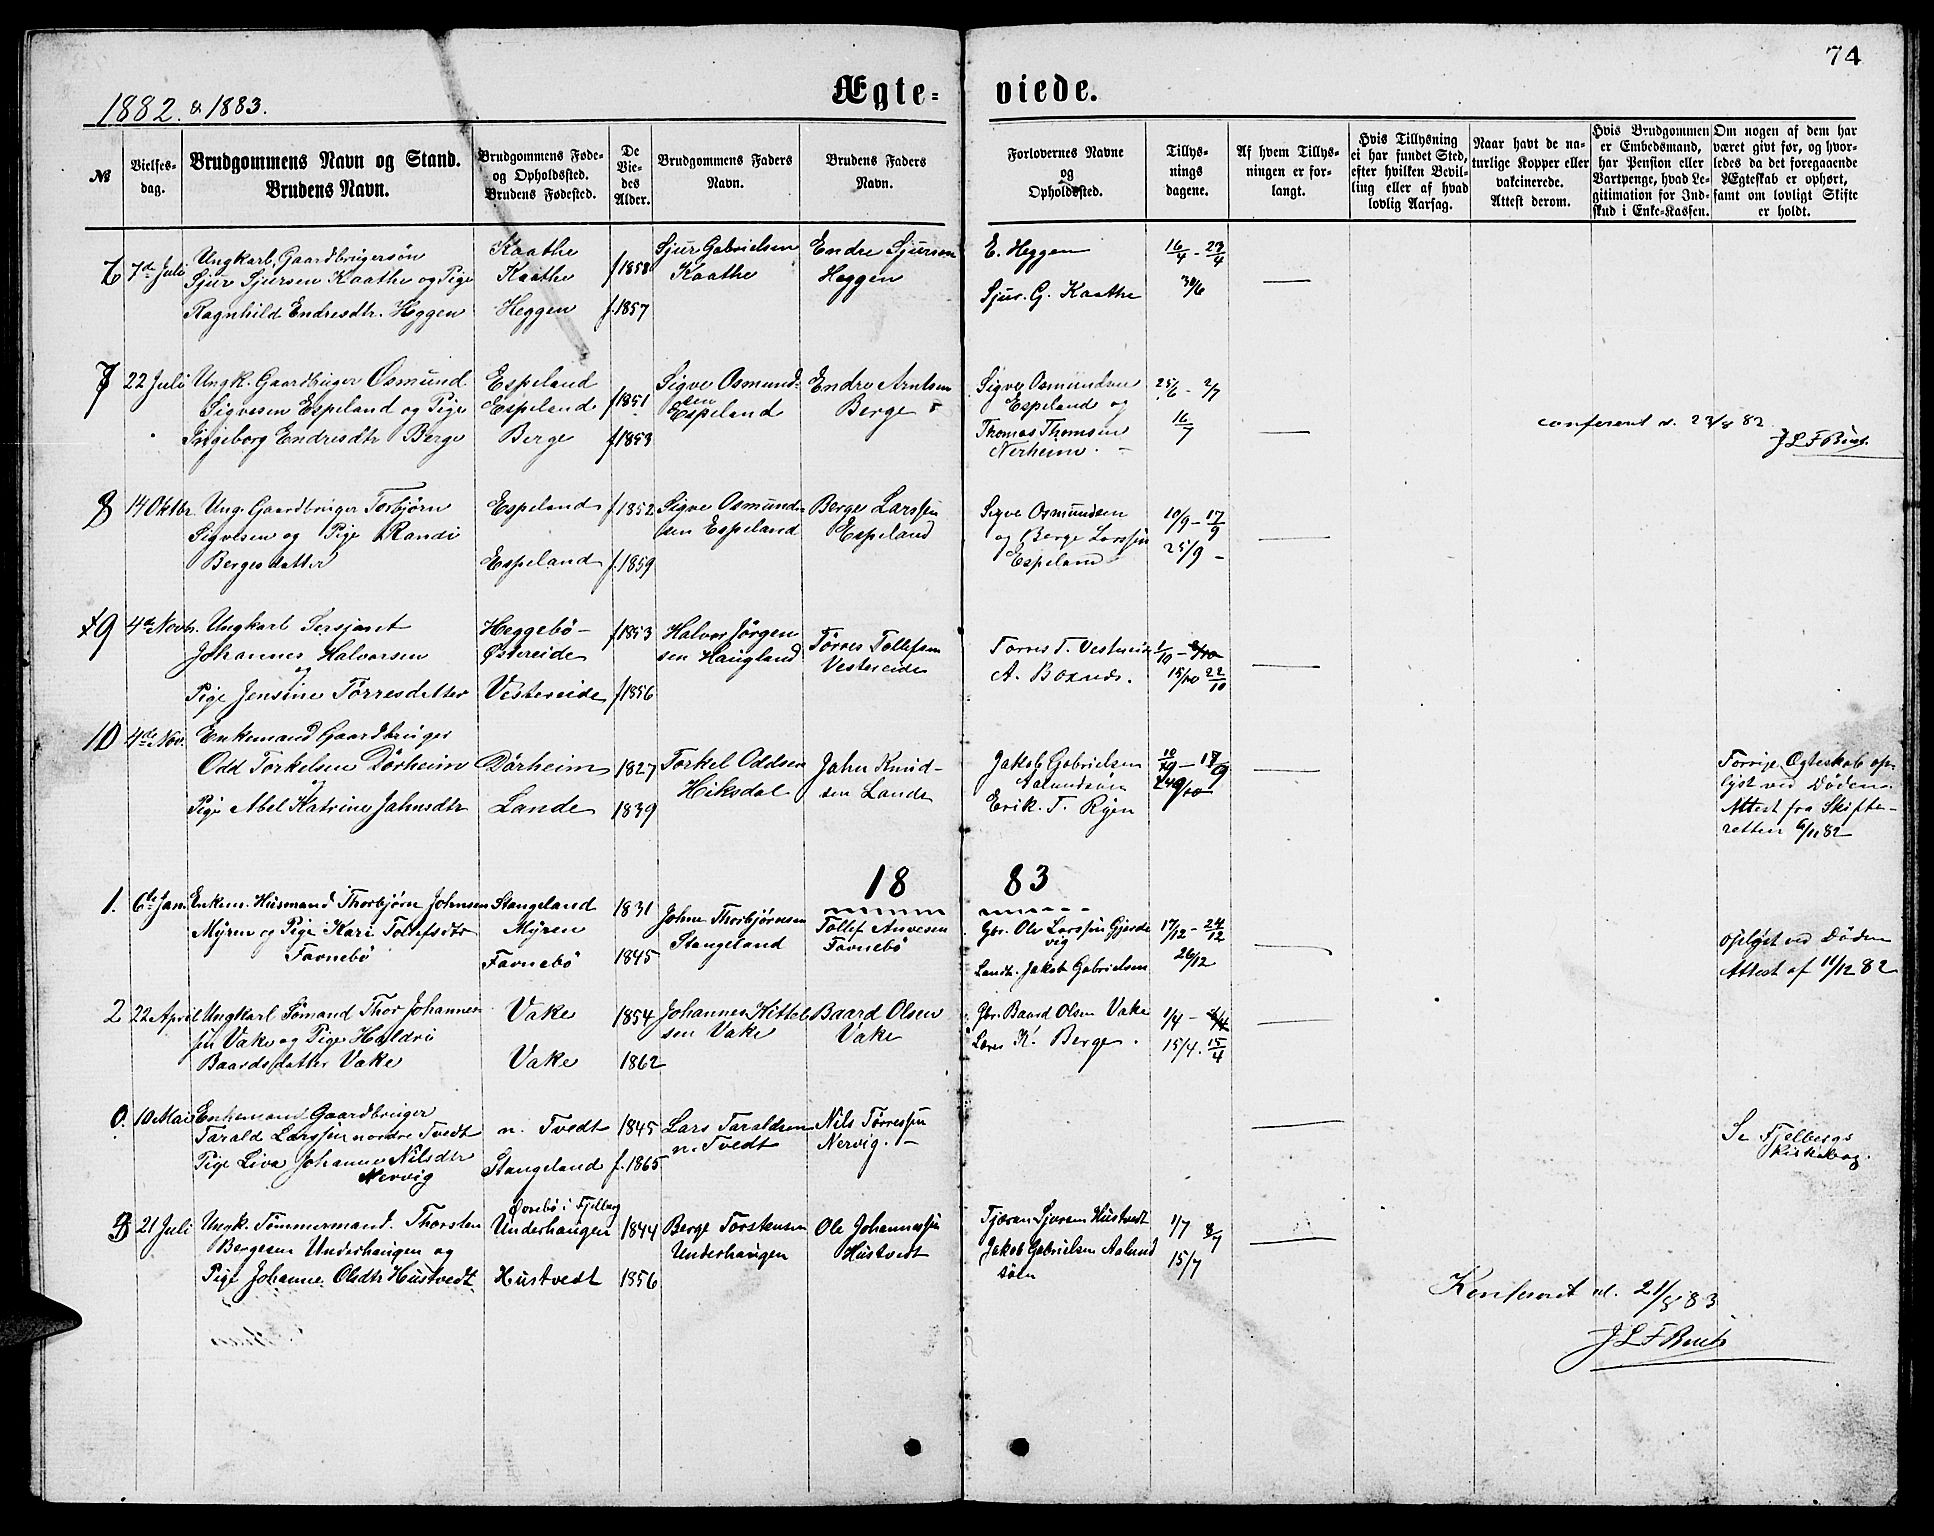 74
1882. & 1883.
Ægteviede.
№
Vielsesdag.
Brudgommens Navn og Stand.
Brudens Navn.
Brudgommens Føde-
og Opholdssted.
Brudens Fødested.
De
Vie-
des
Alder.
Brudgommens Faders
Navn.
Brudens Faders
Navn.
Forlovernes Navne
og
Opholdssted.
Tillys-
nings
dagene.
Af hvem Tillys-
ningen er for-
langt.
Hvis Tillysning
ei har fundet Sted,
efter hvilken Bevil-
ling eller af hvad
lovlig Aarsag.
Naar havt de na-
turlige Kopper eller
vakcinerede.
Attest derom.
Hvis Brudgommen
er Embedsmand,
har Pension eller
Vartpenge, hvad Le-
gitimation for Ind-
skud i Enke-Kassen.
Om nogen af dem har
været givt før, og hvor-
ledes da det foregaaende
Ægteskab er ophørt,
samt om lovligt Skifte
er holdt.
6 7de Juli
Ungkarl, Gaardbrugersøn
Sjur Sjursen Kaathe og Pige
Ragnhild Endresdtr. Heggen
Kaathe
Kaathe
Heggen
f 1858
f. 1857
Sjur Gabrielsen
Kaathe
Endre Sjursen
Heggen
E. Heggen
Sjur. G. Kaathe
16/4 - 23/4
30/6
7 22 Juli
Ungk. Gaardbruger Osmund
Sigvesen Espeland og Pige
Ingeborg Endresdtr Berge
Espeland
Espeland
Berge
f 1851
f 1853
Sigve Osmund-
sen
Espeland
Endre Arntsen
Berge
Sigve Osmundsen
Espeland og
Thomas Thomsen
Nerheim.
25/6 - 2/7
16/7
conferert d. 23/8 82
8 14 Oktbr
Ung. Gaardbruger Torbjørn
Sigvesen og Pige Randi
Bergesdatter
Espeland
Espeland
f. 1852
f. 1859
Sigve Osmund-
sen Espeland
Berge Larssen
Espeland
Sigve Osmundsen
og Berge Larssen
Espeland
10/9 - 17/9
25/9 -
9 4de Novbr.
Ungkarl Sersjant
Johannes Halvorsen
og
Pige Jensine Tørresdatter
Heggebö-
Østereide
Vestereide
f 1853
f 1856
Halvor Jørgen-
sen Haugland
Tørres Tollefsen
Vestereide
Tørres T. Vestereide
1/10 - 8/10
15/10 22/10
10 4de Nov.
Enkemand Gaardbruger
Odd Torkelsen Dörheim
og
Pige Abel Katrine Jahnsdtr
Dörheim
Lande
1827
1839
Torkel Oddsen
Hiksdal
Jahn Knud-
sen Lande
Jakob Gabrielsen
Aalundsön
Erik. T. Ryen
Forrige Egteskab op-
löst ved Döden.
Attest fra Skifte-
retten 6/11 82
1883
1. 6te Jan.
Enkem. Husmand Thorbjørn Johnsen
Myren og Pige Kari Tollefsdtr
Favnebö
Stangeland
Myren
Favnebö
1831
1845
Johne Thorbjørnsen
Stangeland
Tollef Anvesen
Favnebö
Gbr. Ole Larssen Gjerde
vig
Landh. Jakob Gabrielsen
17/12 - 24/12
26/12
opløst ved Döden
Attest af 11/12 82
2 22 April
Ungkarl Sömand Thor Johannes-
sen Vake og Pige Haldri
Baardsdatter Vake
Vake
Vake
1854
1862
Johannes Kittel-
sen Vake
Baard Olsen
Vake
Gbr. Baard Olsen Vake
Lars K. Berge.
1/4 - 8/4
15/4. 15/4
0. 10 Mai
Enkemand Gaardbruger
Tarald Larssen nordre Tvedt
Pige Liva Johanne Nilsdtr
Nervig
n. Tvedt
Stangeland
1845
f. 1865
Lars Taraldsen
n. Tvedt
Nils Tørressen
Nervig.
Se Fjelbergs
Kirkebog.
3 21 Juli
Ungk. Tömmermand. Thorsten
Bergesen Underhaugen og
Pige Johanne Olsdtr Hustvedt
i Fjelberg
Underhaugen
Hustvedt
1844
1856
Berge Torstensen
Underhaugen
Ole Johannessen
Hustvedt
Tjæran Sjursen Hustvedt
Jakob Gabrielsen Aalund
sön
1/7 8/7
15/7
Konfereret d. 21/8 83